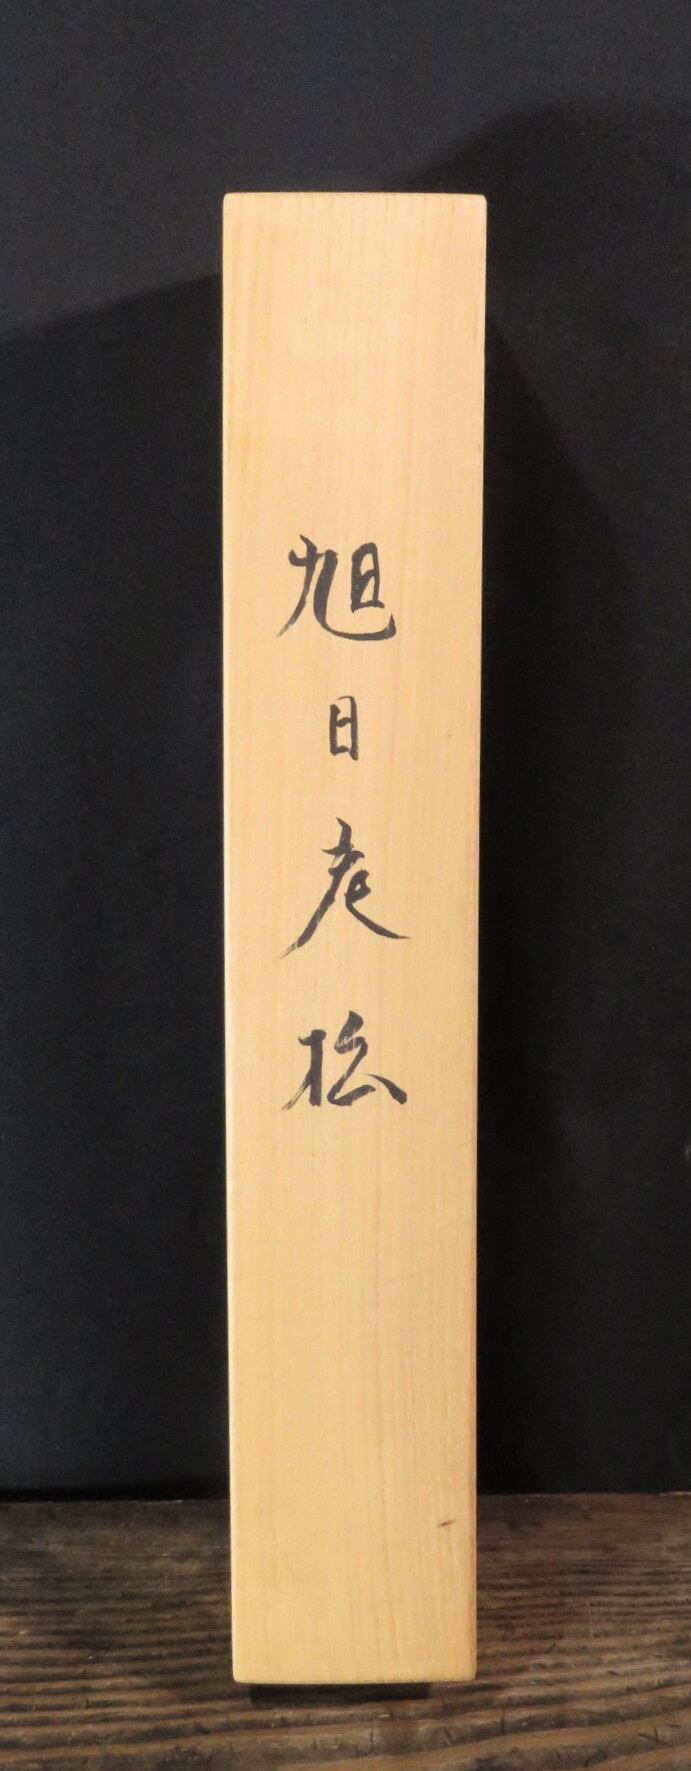 旭日老松